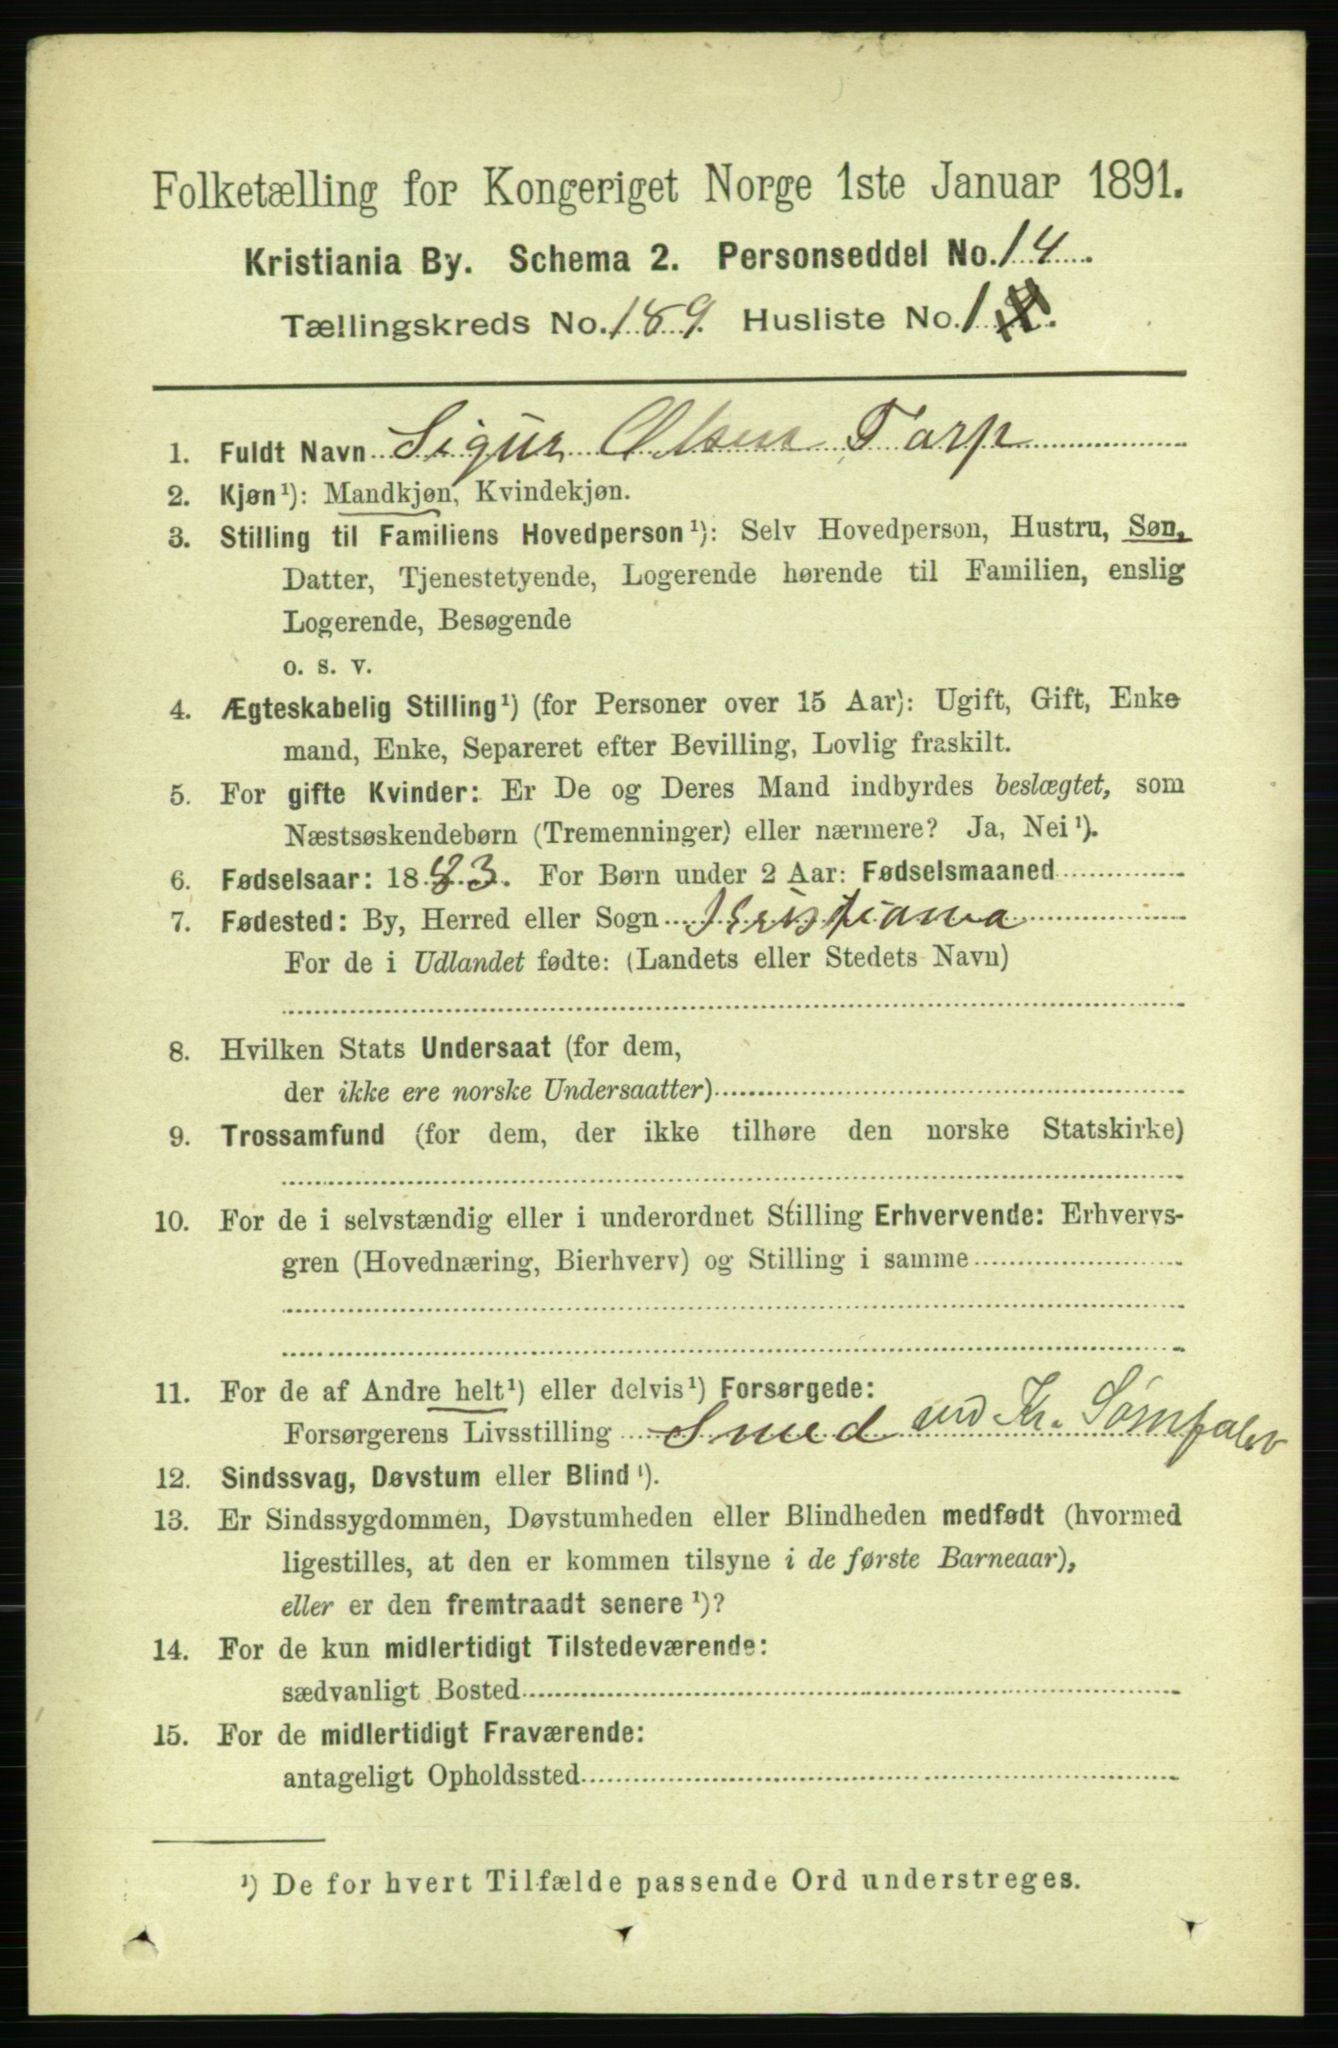 Folketælling for Kongeriget Norge 1ste Januar 1891.
Kristiania By. Schema 2. Personseddel No. 14.
Tællingskreds No. 189. Husliste No. 1.
1. Fuldt Navn Sigur Olsen Torp
2. Kjøn¹): Mandkjøn, Kvindekjøn.
3. Stilling til Familiens Hovedperson¹): Selv Hovedperson, Hustru, Søn,
Datter, Tjenestetyende, Logerende hørende til Familien, enslig
Logerende, Besøgende
o. s. v.
4. Ægteskabelig Stilling¹) (for Personer over 15 Aar): Ugift, Gift, Enke
mand, Enke, Separeret efter Bevilling, Lovlig fraskilt.
5. For gifte Kvinder: Er De og Deres Mand indbyrdes beslægtet, som
Næstsøskendebørn (Tremenninger) eller nærmere? Ja, Nei¹).
6. Fødselsaar: 1883. For Børn under 2 Aar: Fødselsmaaned
7. Fødested: By, Herred eller Sogn Kristiania
For de i Udlandet fødte: (Landets eller Stedets Navn)
8. Hvilken Stats Undersaat (for dem,
der ikke ere norske Undersaatter)
9. Trossamfund (for dem, der ikke tilhøre den norske Statskirke)
10. For de i selvstændig eller i underordnet Stilling Erhvervende: Erhvervs-
gren (Hovednæring, Bierhverv) og Stilling i samme
11. For de af Andre helt¹) eller delvis¹) Forsørgede:
Forsørgerens Livsstilling Smed ved Kr.
12. Sindssvag, Døvstum eller Blind¹).
13. Er Sindssygdommen, Døvstumheden eller Blindheden medfødt (hvormed
ligestilles, at den er kommen tilsyne i de første Barneaar),
eller er den fremtraadt senere¹)?
14. For de kun midlertidigt Tilstedeværende:
sædvanligt Bosted
15. For de midlertidigt Fraværende:
antageligt Opholdssted
¹) De for hvert Tilfælde passende Ord understreges.